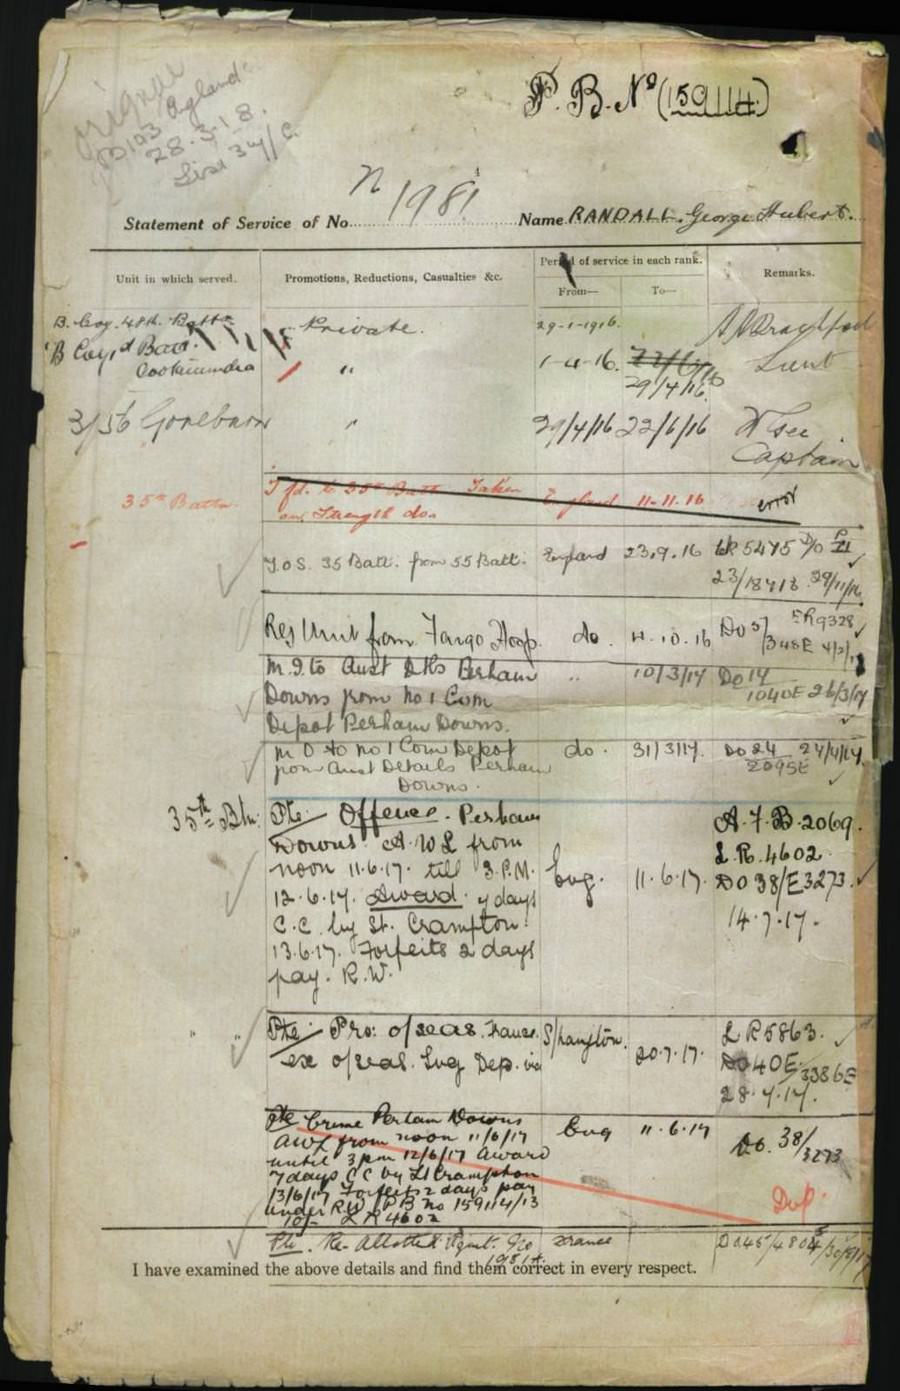 P. B. No (159114)
28.3.18.
List 34/C
N 1981
Statement of Service of No. Name RANDALL. George Hubert.
Unit in which served. Promotions, Reductions, Casualties &c. Period of service in each rank. Remarks.
From— To—
B. Coy. 48th. Battn Private. 29-1-1916.
B Coy Batt " 1-4-16. 29/4/16 Lieut
Cootamundra
3/56 Goulburn " 29/4/16 22/6/16
Captain
35th Battn. Tfd. to 35th Battn Taken England 11-11.16 error
on Strength do.
T.O.S. 35 Batt. from 55 Batt. England 23.9.16 LR 5475 D/O
29/11/16
Reg Unit from Fargo Hosp. do. 11.10.16 DO 5/348E ER9328
M.I. to Aust Dtls Perham " 10/3/17 DO 14
Downs from No 1 Com 1040E 26/3/17
Depot Perham Downs.
M O to no 1 Com Depot do. 31/3/17. DO 24 24/4/17
from Aust Details Perham 2095E
Downs.
35th Bn. Pte. Offence. Perham A.F.B.2069.
Downs. A.W.L from L.R.4602.
noon 11.6.17. till 3.P.M. Eng. 11.6.17. DO 38/E3273.
12.6.17. Award. 7 days 14.7.17.
C.C. by Lt. Crampton.
13.6.17. Forfeits 2 days
pay. R.W.
" " Pte. Pro: o/seas. France. S/hampton. 20.7.17. L R 5863.
ex o/seas. Eng Dep. via DO 40E/3386E
28.7.17.
Pte Crime Perham Downs Eng 11.6.17 Do. 38/3273
AWL from noon 11/6/17
until 3pm 12/6/17 Award
7 days CC by Lt Crampton
13/6/17 Forfeits 2 days pay Dup.
under RW PB no 159114/13
LR 4602
Pte. Re-Allotted Regmt. No France
1981A.
I have examined the above details and find them correct in every respect.